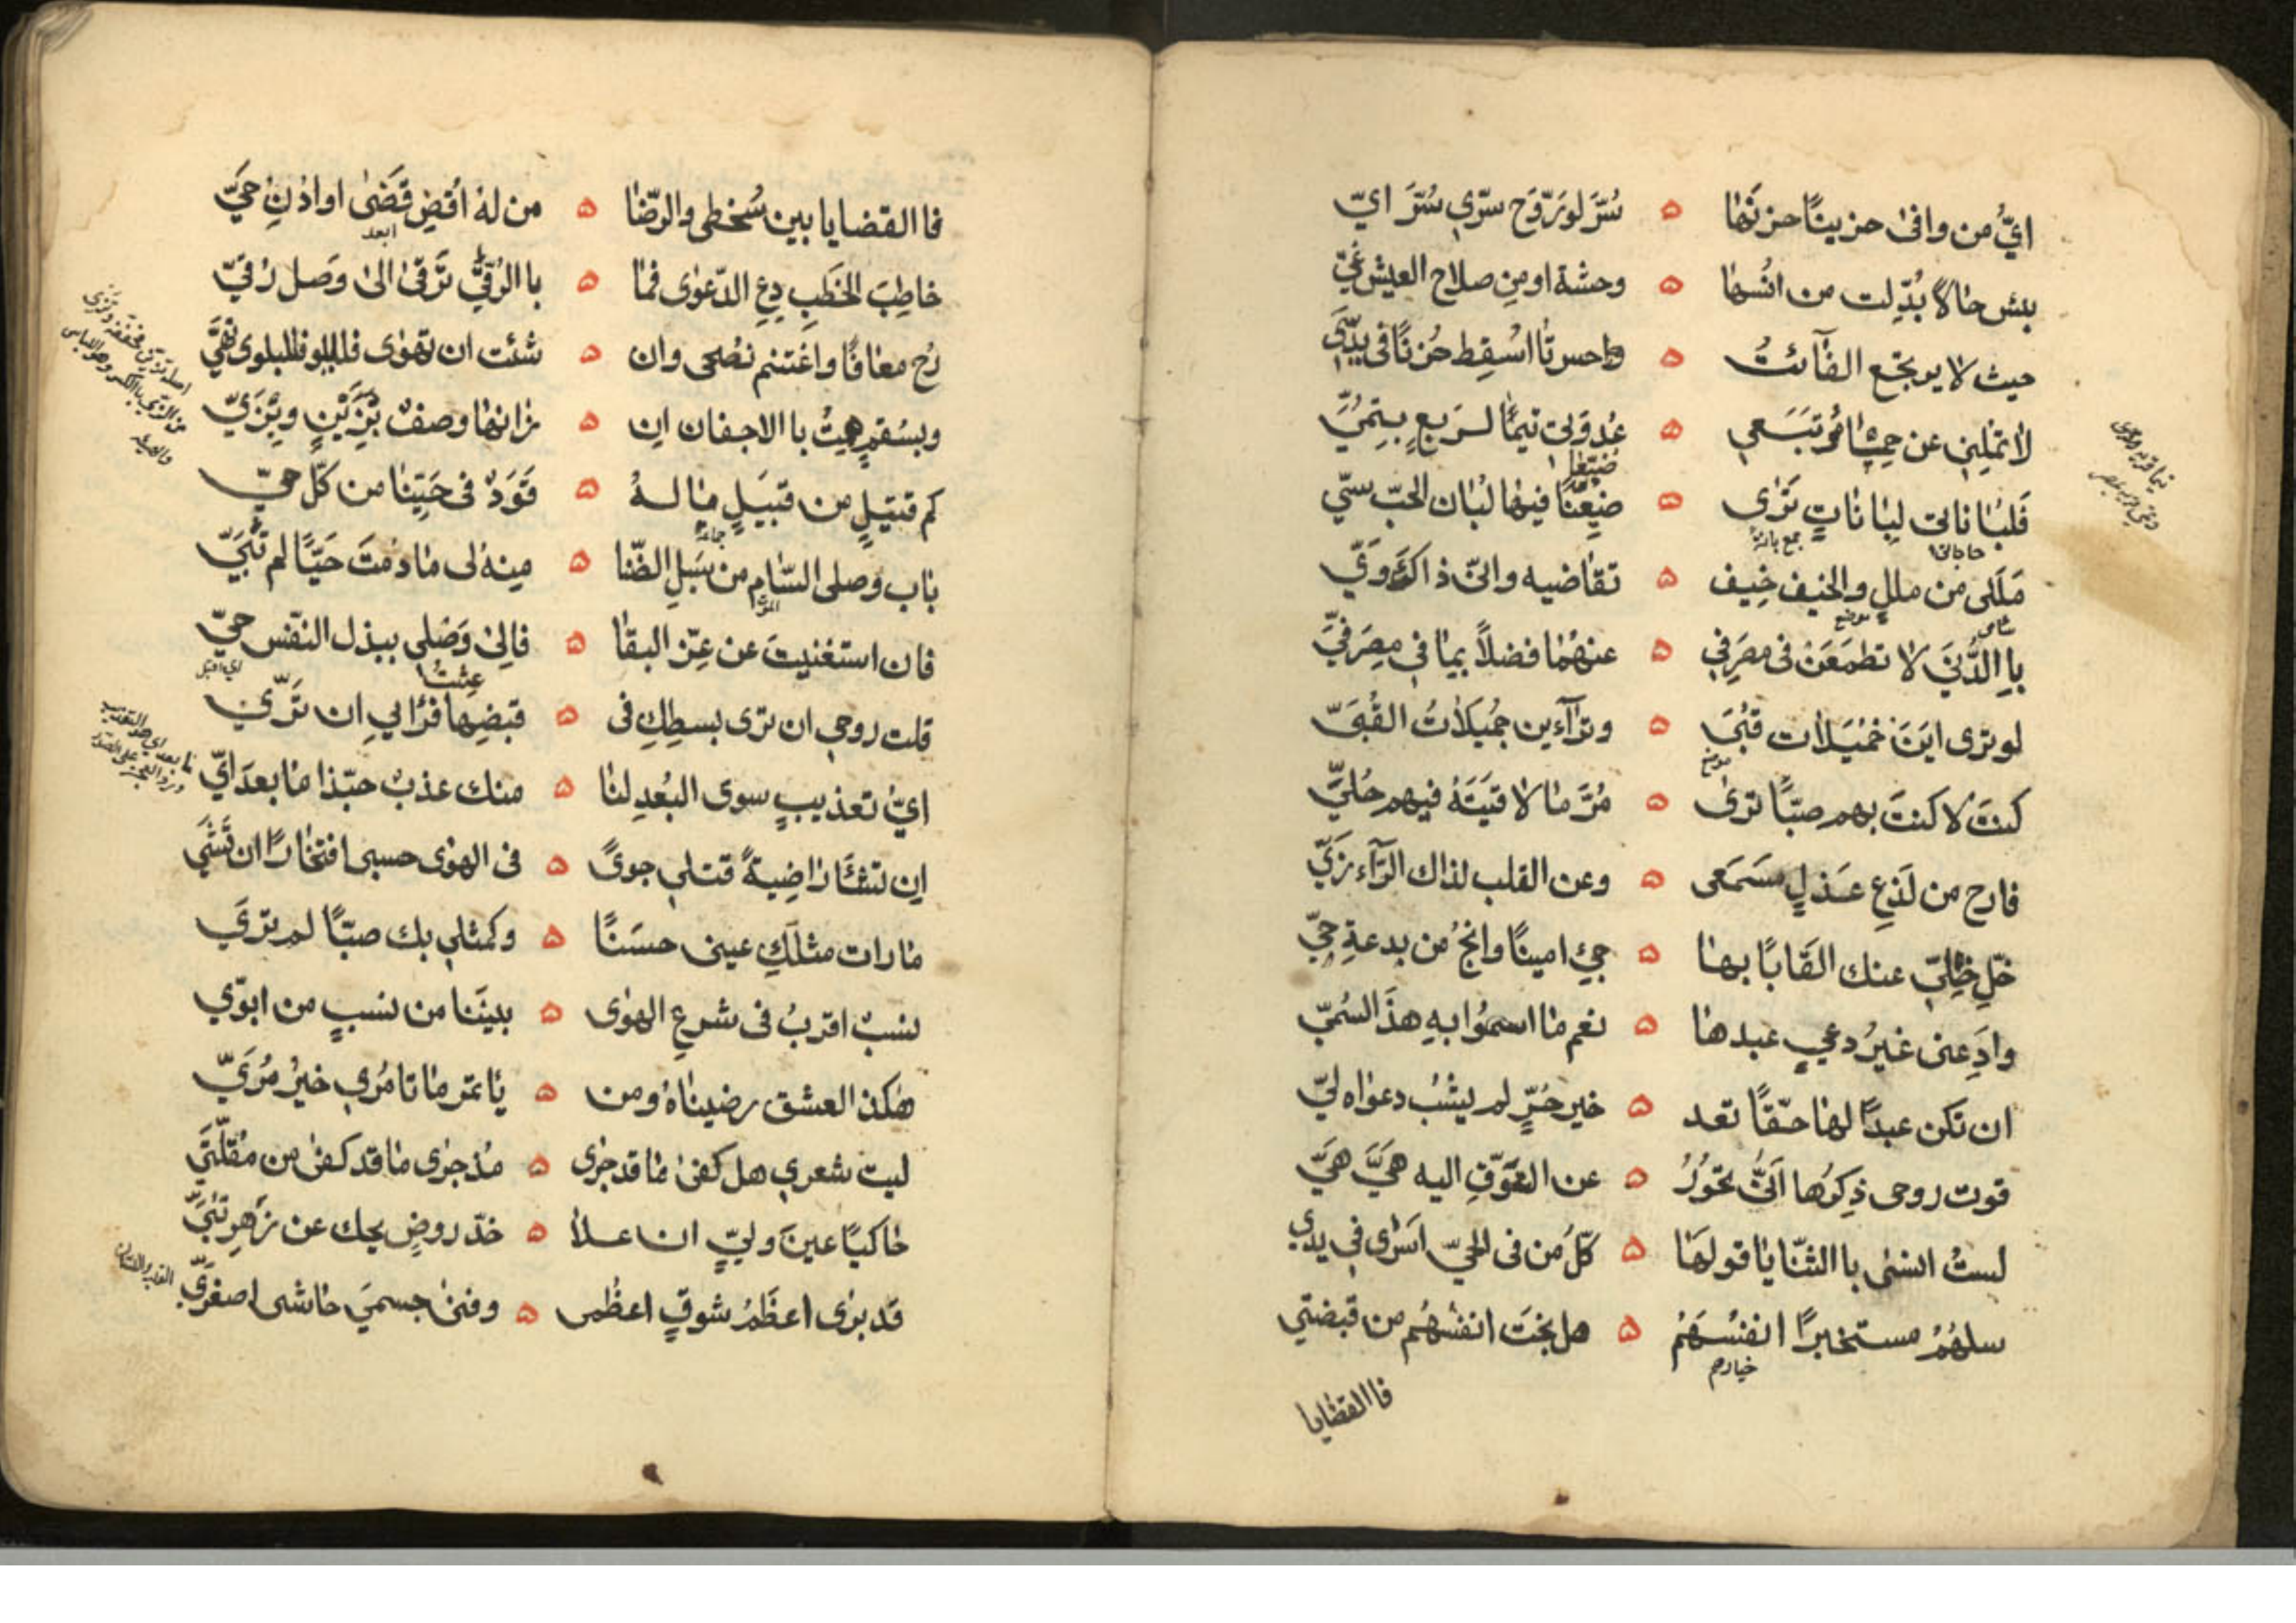 ايُّ من وافىٰ حزينًا حزنَها ه سُرَّ لو رَوَّح سرّي سُرَّ ايّ
بئس حالًا بُدِّلت من انُسها ه وحشة او من صلاح العيش غيّ
حيث لا يرتجع الفآئتُ ه واحسرتا اسْقِط حُزنًا فى يدَيّ
لا تملني عن حِمىٰ مُرتَبَعي ه عُدوَتى تيمًا لربعٍ بتميّ
فلبُاناتى لبِاناتٍ تَرٰى ه ضيعنا فيها لبُان الحبّ سيّ
مَلَلى من مللٍ والخيف خِيف ه تقاضيه وانّى ذاك وَيّ
با الدُّنىَ لا تطمَعَن فى مصرفي ه عنهُما فضلاً بما في مِصرَ فيّ
لو ترى اينَ خميلات قُبٰى ه وترآءين جميلاتُ القُبَىّ
كنتَ لا كنتَ بهم صبّاً ترىٰ ه مُرَّ ما لا قيتَهُ فيهم حُليّ
فارح من لَذعِ عذلٍ مسمَعى ه وعن القلب لذاك الرّآء زيّ
خلِّ خلّي عنك القابًا بها ه جئ امينًا وانجُ من بدعةِ جيّ
وادعنى غيرُ دعيٍ عبدها ه نعم ما اسموا بهِ هذا السُميّ
ان تكن عبدًا لها حقًّا تعد ه خير حُرٍّ لم يشُب دعواه ليّ
قوت روحى ذِكرُها انّى تحُورُ ه عن التوَقِ اليه هىَّ هىَّ
لستُ انسٰى با الثنّايا قولها ه كلُّ من فى الحيّ اسرٰى في يدي
سلهُمُ مستخبرًا انفسَهُم ه هل نجَت انفسُهُم من قبضتي
خيارهم
فا القضايا
فا القضايا بين سُخطى والرّضا ه من لهُ اقضِ قضَىٰ او ادنِ حيّ
ابعد
خاطِبَ الخَطبِ دعِ الدّعوٰى فما ه با الرُقىّ ترقىٰ الىٰ وَصل رُقيّ
رُح معافًا واغتنم نصُحى وان ه شئت ان تهوٰى فللبلوى تهيّ
وبسُقمٍ هِمتُ با الاجفان ان ه زانها وصفٌ بزَينٍ وبزيّ
كم قتيلٍ من قبيلٍ ما لهُ ه قوَدٌ فى حبّنا من كلّ حيّ
باب وصلى السّام من سُبل الضّنا ه منه لى ما دمتَ حيًّا لم تُبيّ
فان استغنيتَ عن عِزّ البقا ه فالىٰ وَصلي ببذل النفس حيّ
قلت روحي ان ترى بسطِكِ فى ه قبضِها عشتُ فرأيي ان ترَيّ
ايُّ تعذيبٍ سوى البُعدِ لنا ه منك عذبٌ حبّذا ما بعد ايّ
ان تشَأ راضِيةً قتلي جوىً ه فى الهوٰى حسبى افتخارًا ان تُشَيّ
ما رات مثلَكِ عينى حسَنًا ه وكمثلي بك صبًّا لم ترَيّ
نسبٌ اقربُ فى شرعِ الهوٰى ه بينَنا من نسبٍ من ابوّي
هكذا العشق رضيناهُ ومن ه ياتمر ما تامُري خيرُ مُرَيّ
ليت شعري هل كفىٰ ما قد جرٰى ه مُذ جرٰى ما قد كفىٰ من مقلَتيّ
حاكيًا عينَ وليٍّ ان علا ه خدّ روضٍ يبك عن زَهرٍ تُبيّ
قد برٰى اعظَمُ شوقٍ اعظُمى ه وفنىٰ جسميَ حاشى اصغرَيّ